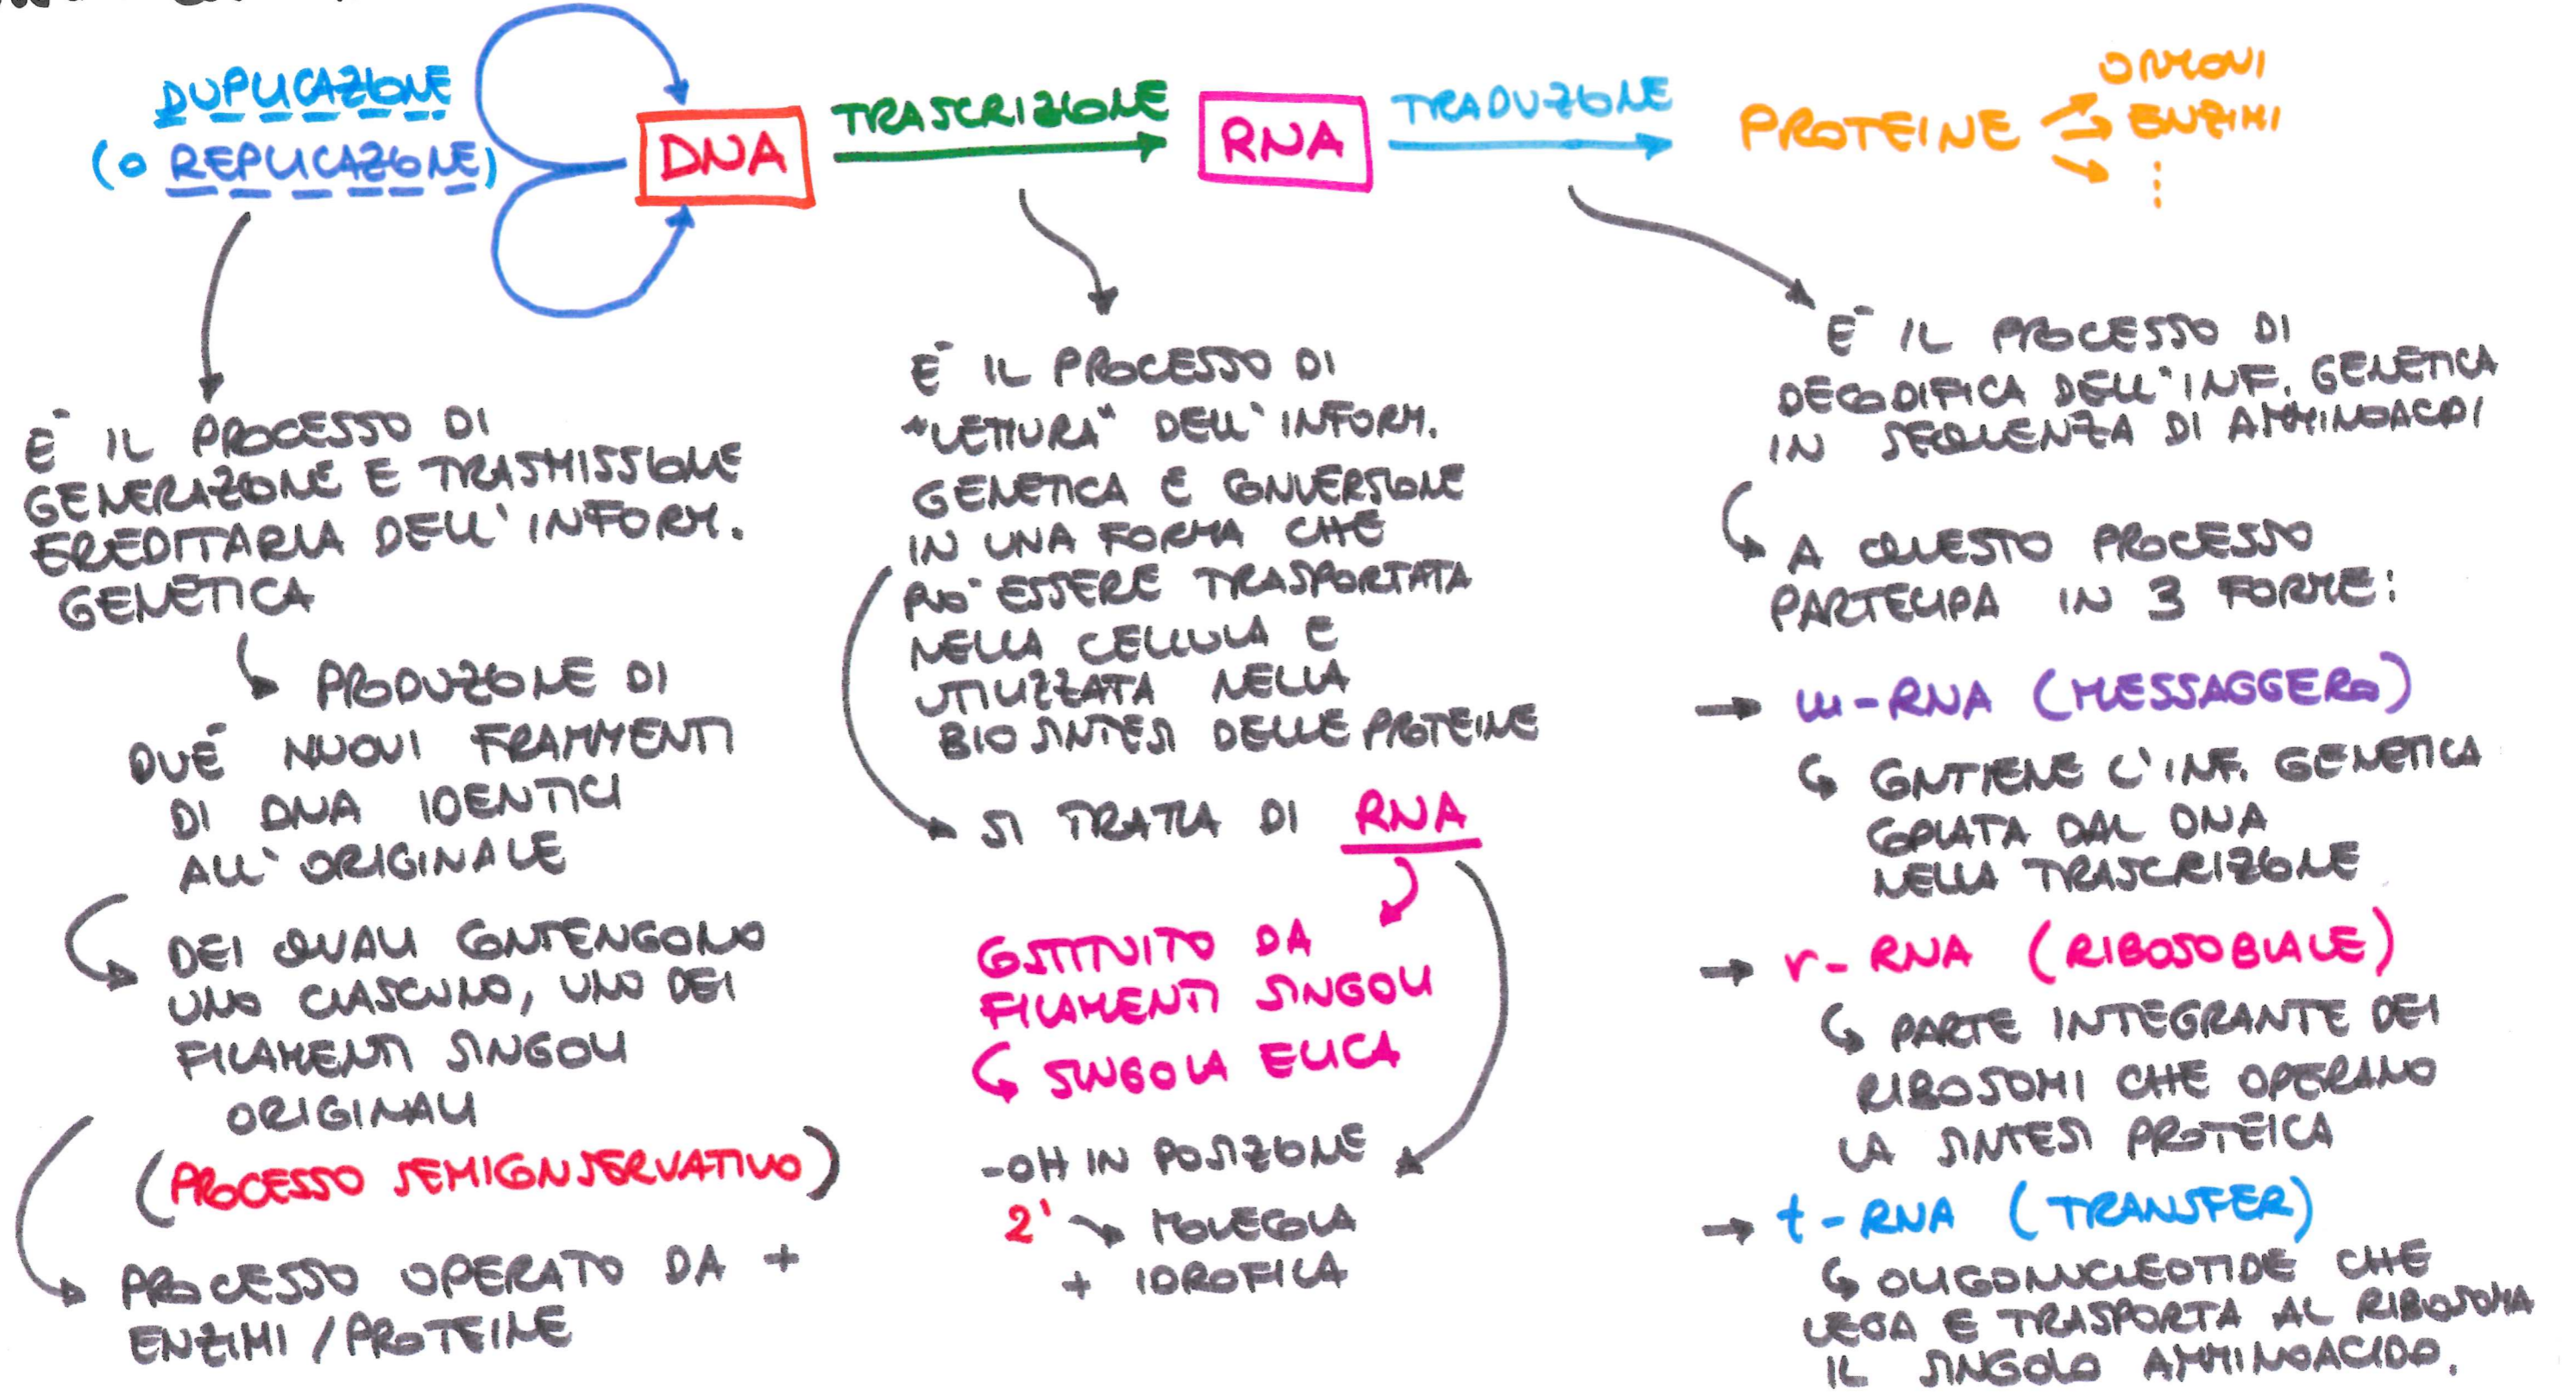 DUPLICAZIONE
(O REPLICAZIONE)
DNA
TRASCRIZIONE
RNA
TRADUZIONE
PROTEINE
ORMONI
ENZIMI
E' IL PROCESSO DI
GENERAZIONE E TRASMISSIONE
EREDITARIA DELL'INFORM.
GENETICA
PRODUZIONE DI
DUE NUOVI FRAMMENTI
DI DNA IDENTICI
ALL'ORIGINALE
DEI QUALI CONTENGONO
UNO CIASCUNO, UNO DEI
FILAMENTI SINGOLI
ORIGINALI
(PROCESSO SEMICONSERVATIVO)
PROCESSO OPERATO DA +
ENZIMI / PROTEINE
E' IL PROCESSO DI
"LETTURA" DELL'INFORM.
GENETICA E CONVERSIONE
IN UNA FORMA CHE
PUO' ESSERE TRASPORTATA
NELLA CELLULA E
UTILIZZATA NELLA
BIOSINTESI DELLE PROTEINE
SI TRATTA DI RNA
COSTITUITO DA
FILAMENTI SINGOLI
SINGOLA ELICA
-OH IN POSIZIONE
2' MOLECOLA
+ IDROFILA
E' IL PROCESSO DI
DECODIFICA DELL'INF. GENETICA
IN SEQUENZA DI AMMINOACIDI
A QUESTO PROCESSO
PARTECIPA IN 3 FORME:
→ m-RNA (MESSAGGERO)
CONTIENE L'INF. GENETICA
COPIATA DAL DNA
NELLA TRASCRIZIONE
→ r-RNA (RIBOSOBIALE)
PARTE INTEGRANTE DEI
RIBOSOMI CHE OPERANO
LA SINTESI PROTEICA
→ t-RNA (TRANSFER)
OLIGONUCLEOTIDE CHE
LEGA E TRASPORTA AL RIBOSOMA
IL SINGOLO AMMINOACIDO.